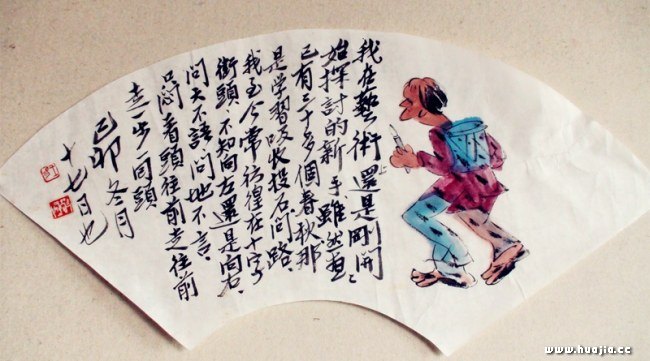 我在藝術上還是剛開
始探討的新手雖然画
已有三十多個春秋那
是学習吸收投石问路、
我至今常彷徨在十字
街頭不知向左還是向右、
问天不語、问地不言、
只悶着頭往前走往前
走一步一回頭
己卯冬月
十七日也
www.huajia.cc